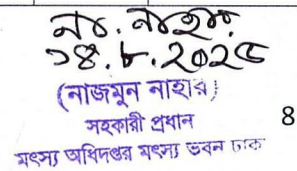 না. নাহার.
১৪.৮.২০২৫
(নাজমুন নাহার)
সহকারী প্রধান
8
মৎস্য অধিদপ্তর মৎস্য ভবন ঢাকা